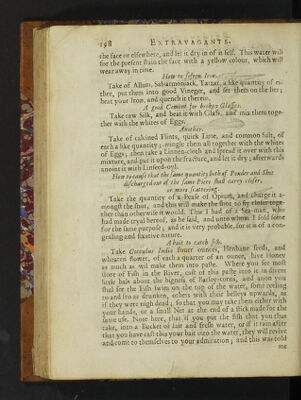 198 EXTRAVAGANTS.
the face or elsewhere, and let it dry in of it self. This water will
for the present stain the face with a yellow colour, which will
wear away in time.
How to soften Iron.
Take of Allum, Sal-armoniack, Tartar, a like quantity of ei-
ther, put them into good Vineger, and set them on the fire;
heat your Iron, and quench it therein.
A good Cement for broken Glasses.
Take raw Silk, and beat it with Glass, and mix them toge-
ther with the whites of Eggs.
Another.
Take of calcined Flints, quick Lime, and common Salt, of
each a like quantity; mingle them all together with the whites
of Eggs; then take a Linnen-cloth and spread it over with this
mixture, and put it upon the fracture, and let it dry; afterwards
annoint it with Linseed-oyl.
How to cause that the same quantity both of Powder and Shot
discharged out of the same Piece shall carry closer,
or more scattering.
Take the quantity of a Pease of Opium, and charge it a-
mongst the shot, and this will make the shot to fly closer toge-
ther than otherwise it would. This I had of a Sea-man, who
had made tryal hereof, as he said, and unto whom I sold some
for the same purpose; and it is very probable, for it is of a con-
gealing and fixative nature.
A bait to catch fish.
Take Cocculus Indiæ ounces, Henbane seeds, and
wheaten flower, of each a quarter of an ounce, hive Honey
as much as will make them into paste. Where you see most
store of Fish in the River, cast of this paste into it in divers
little bals about the bigness of Barley-corns, and anon you
shal see the Fish swim on the top of the water, some reeling
to and fro as drunken, others with their bellies upwards, as
if they were nigh dead; so that you may take them either with
your hands, or a small Net at the end of a stick made for the
same use. Note here, that if you put the fish that you thus
take, into a Bucket of fair and fresh water, or if it rain after
that you have cast this your bait into the water, they will revive
and come to themselves to your admiration; and this was told
me